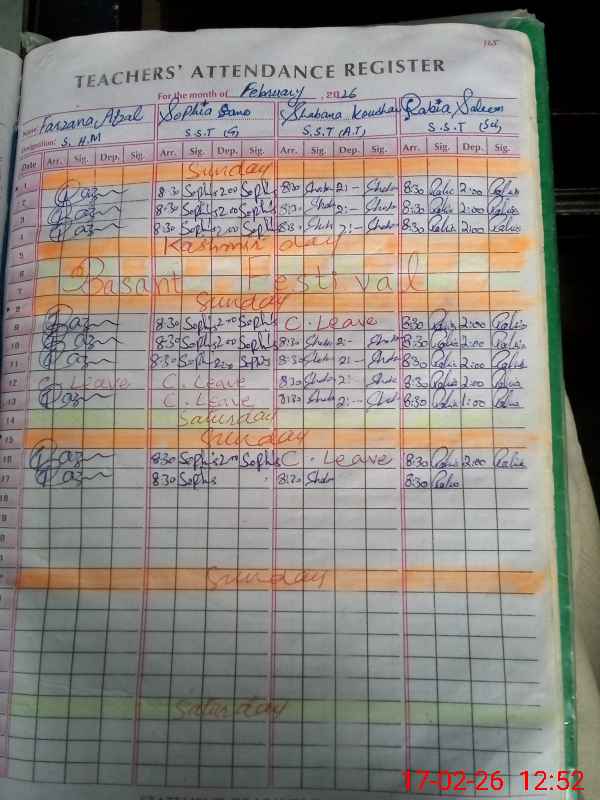 165
TEACHERS' ATTENDANCE REGISTER
For the month of February, 2026
Name: Farzana Afzal Sophia Bano Shabana Kousar Rabia Saleem
Designation: S. H.M S.S.T (G) S.S.T (A.T) S.S.T (Sci)
Date Arr. Sig. Dep. Sig. Arr. Sig. Dep. Sig. Arr. Sig. Dep. Sig. Arr. Sig. Dep. Sig.
1 Sunday
2 8:30 Sophi 2:00 Sophi 8:30 Shaba 2:- Shaba 8:30 Rabia 2:00 Rabia
3 8:30 Sophi 2:00 Sophi 8:30 Shaba 2:- Shaba 8:30 Rabia 2:00 Rabia
4 8:30 Sophi 2:00 Sophi 8:30 Shaba 2:- Shaba 8:30 Rabia 2:00 Rabia
5 Kashmir day
6
7 Basant Festival
8 Sunday
9 8:30 Sophi 2:00 Sophi C. Leave 8:30 Rabia 2:00 Rabia
10 8:30 Sophi 2:00 Sophi 8:30 Shaba 2:- Shaba 8:30 Rabia 2:00 Rabia
11 8:30 Sophi 2:00 Sophi 8:30 Shaba 2:- Shaba 8:30 Rabia 2:00 Rabia
12 C. Leave C. Leave 8:30 Shaba 2:- Shaba 8:30 Rabia 2:00 Rabia
13 C. Leave 8:30 Shaba 2:- Shaba 8:30 Rabia 1:00 Rabia
14 Saturday
15 Sunday
16 8:30 Sophi 2:00 Sophi C. Leave 8:30 Rabia 2:00 Rabia
17 8:30 Sophi 8:30 Shaba 8:30 Rabia
18
Sunday
Saturday
17-02-26 12:52